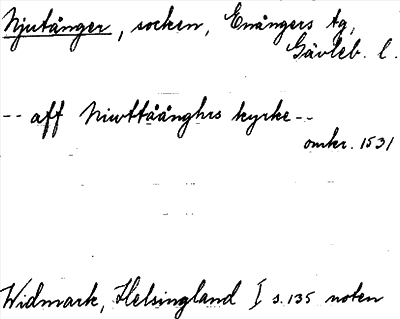 Njutånger, socken, Enångers tg,
Gävleb. l.
-- aff Niwttåånghrs kyrke --
omkr. 1531
Widmark, Helsingland I s. 135 noten